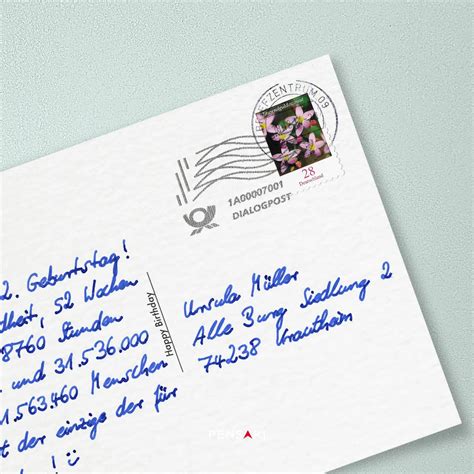 EFZENTRUM 09
28
Deutschland
1A00007001
DIALOGPOST
2. Geburtstag!
dheit, 52 Wochen
8760 Stunden
und 31.536.000
1.563.460 Menschen
t der einzige der für
!
Happy Birthday
Ursula Müller
Alte Burg Siedlung 2
74238 Krautheim
PENSAKI